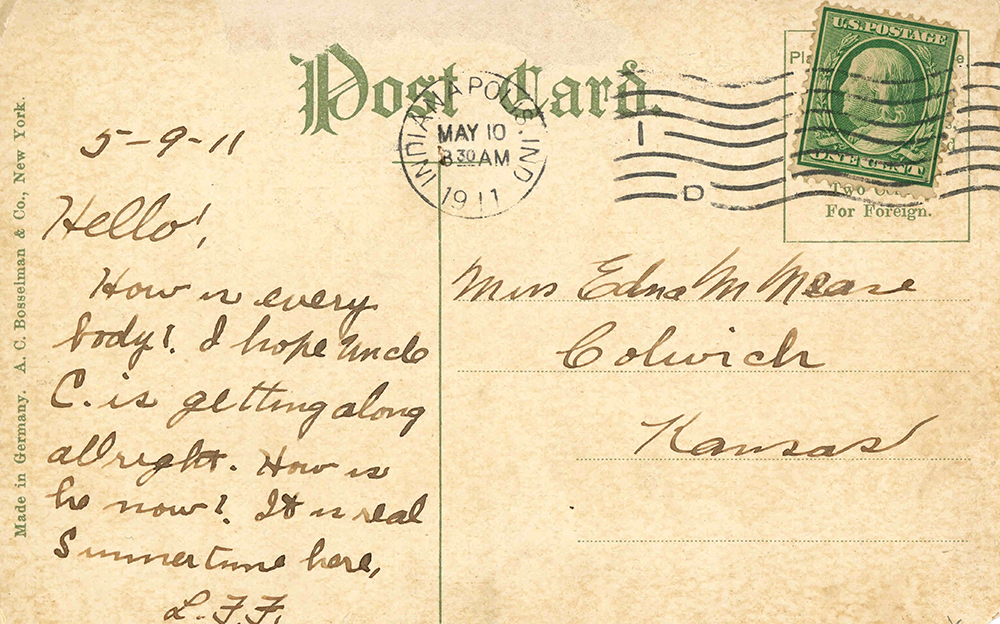 Post Card.
Made in Germany. A. C. Bosselman & Co., New York.
INDIANAPOLIS, IND
MAY 10
8 30 AM
1911
1
D
U.S. POSTAGE
ONE CENT
Pl
e
Two
For Foreign.
5-9-11
Hello!,
How is every
body?. I hope Uncle
C. is getting along
allright. How is
he now?. It is real
Summertime here,
L.F.F.
Miss Edna M Mease
Colwich
Kansas